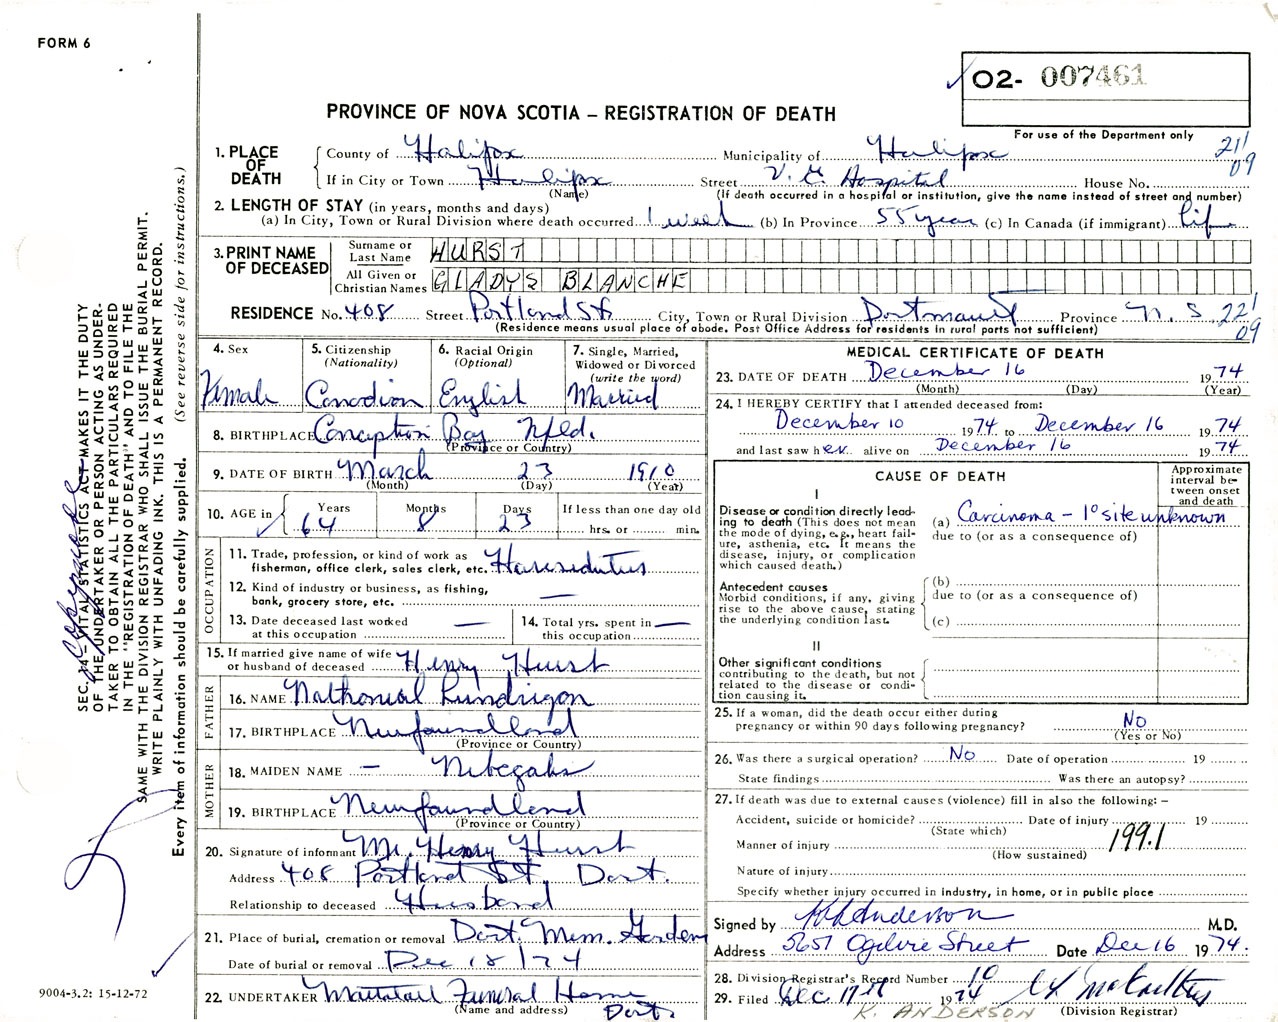 FORM 6
O2- 007461
PROVINCE OF NOVA SCOTIA – REGISTRATION OF DEATH
For use of the Department only
21/
09
1. PLACE OF DEATH
County of Halifax Municipality of Halifax
If in City or Town Halifax Street V. G. Hospital House No.
(Name) (If death occurred in a hospital or institution, give the name instead of street and number)
2. LENGTH OF STAY (in years, months and days)
(a) In City, Town or Rural Division where death occurred 1 week (b) In Province 55 years (c) In Canada (if immigrant) Life
3. PRINT NAME OF DECEASED
Surname or Last Name HURST
All Given or Christian Names GLADYS BLANCHE
RESIDENCE No. 408 Street Portland St. City, Town or Rural Division Dartmouth Province N. S 22/
09
(Residence means usual place of abode. Post Office Address for residents in rural parts not sufficient)
4. Sex
Female
5. Citizenship
(Nationality)
Canadian
6. Racial Origin
(Optional)
English
7. Single, Married,
Widowed or Divorced
(write the word)
Married
8. BIRTHPLACE Conception Bay Nfld.
(Province or Country)
9. DATE OF BIRTH March 23 1910
(Month) (Day) (Year)
10. AGE in
Years Months Days If less than one day old
64 8 23 hrs. or min.
OCCUPATION
11. Trade, profession, or kind of work as
fisherman, office clerk, sales clerk, etc.
12. Kind of industry or business, as fishing,
bank, grocery store, etc. —
13. Date deceased last worked
at this occupation —
14. Total yrs. spent in
this occupation —
15. If married give name of wife
or husband of deceased Henry Hurst
FATHER
16. NAME Nathanial Lundrigan
17. BIRTHPLACE Newfoundland
(Province or Country)
MOTHER
18. MAIDEN NAME –
19. BIRTHPLACE Newfoundland
(Province or Country)
20. Signature of informant Mr. Henry Hurst
Address 408 Portland St. Dart.
Relationship to deceased Husband
21. Place of burial, cremation or removal Dart. Mem. Gardens
Date of burial or removal Dec 18/74
22. UNDERTAKER Mattatall Funeral Home
(Name and address) Dart.
MEDICAL CERTIFICATE OF DEATH
23. DATE OF DEATH December 16 19 74
(Month) (Day) (Year)
24. I HEREBY CERTIFY that I attended deceased from:
December 10 1974 to December 16 19 74
and last saw her alive on December 16 19 74
CAUSE OF DEATH
Approximate
interval be-
tween onset
and death
I
Disease or condition directly lead-
ing to death (This does not mean
the mode of dying, e.g., heart fail-
ure, asthenia, etc. It means the
disease, injury, or complication
which caused death.)
(a) Carcinoma – 1° site unknown
due to (or as a consequence of)
Antecedent causes
Morbid conditions, if any, giving
rise to the above cause, stating
the underlying condition last.
(b)
due to (or as a consequence of)
(c)
II
Other significant conditions
contributing to the death, but not
related to the disease or condi-
tion causing it.
25. If a woman, did the death occur either during
pregnancy or within 90 days following pregnancy? No
(Yes or No)
26. Was there a surgical operation? No Date of operation 19
State findings Was there an autopsy?
27. If death was due to external causes (violence) fill in also the following: –
Accident, suicide or homicide? Date of injury 19
(State which)
Manner of injury 199.1
(How sustained)
Nature of injury
Specify whether injury occurred in industry, in home, or in public place
Signed by Anderson M.D.
Address 5657 Ogilvie Street Date Dec 16 19 74.
28. Division Registrar's Record Number 10
29. Filed Dec. 17th 1974
K. ANDERSON (Division Registrar)
SEC. 14 – VITAL STATISTICS ACT MAKES IT THE DUTY
OF THE UNDERTAKER OR PERSON ACTING AS UNDER-
TAKER TO OBTAIN ALL THE PARTICULARS REQUIRED
IN THE "REGISTRATION OF DEATH" AND TO FILE THE
SAME WITH THE DIVISION REGISTRAR WHO SHALL ISSUE THE BURIAL PERMIT.
WRITE PLAINLY WITH UNFADING INK. THIS IS A PERMANENT RECORD.
Every item of information should be carefully supplied. (See reverse side for instructions.)
9004-3.2: 15-12-72